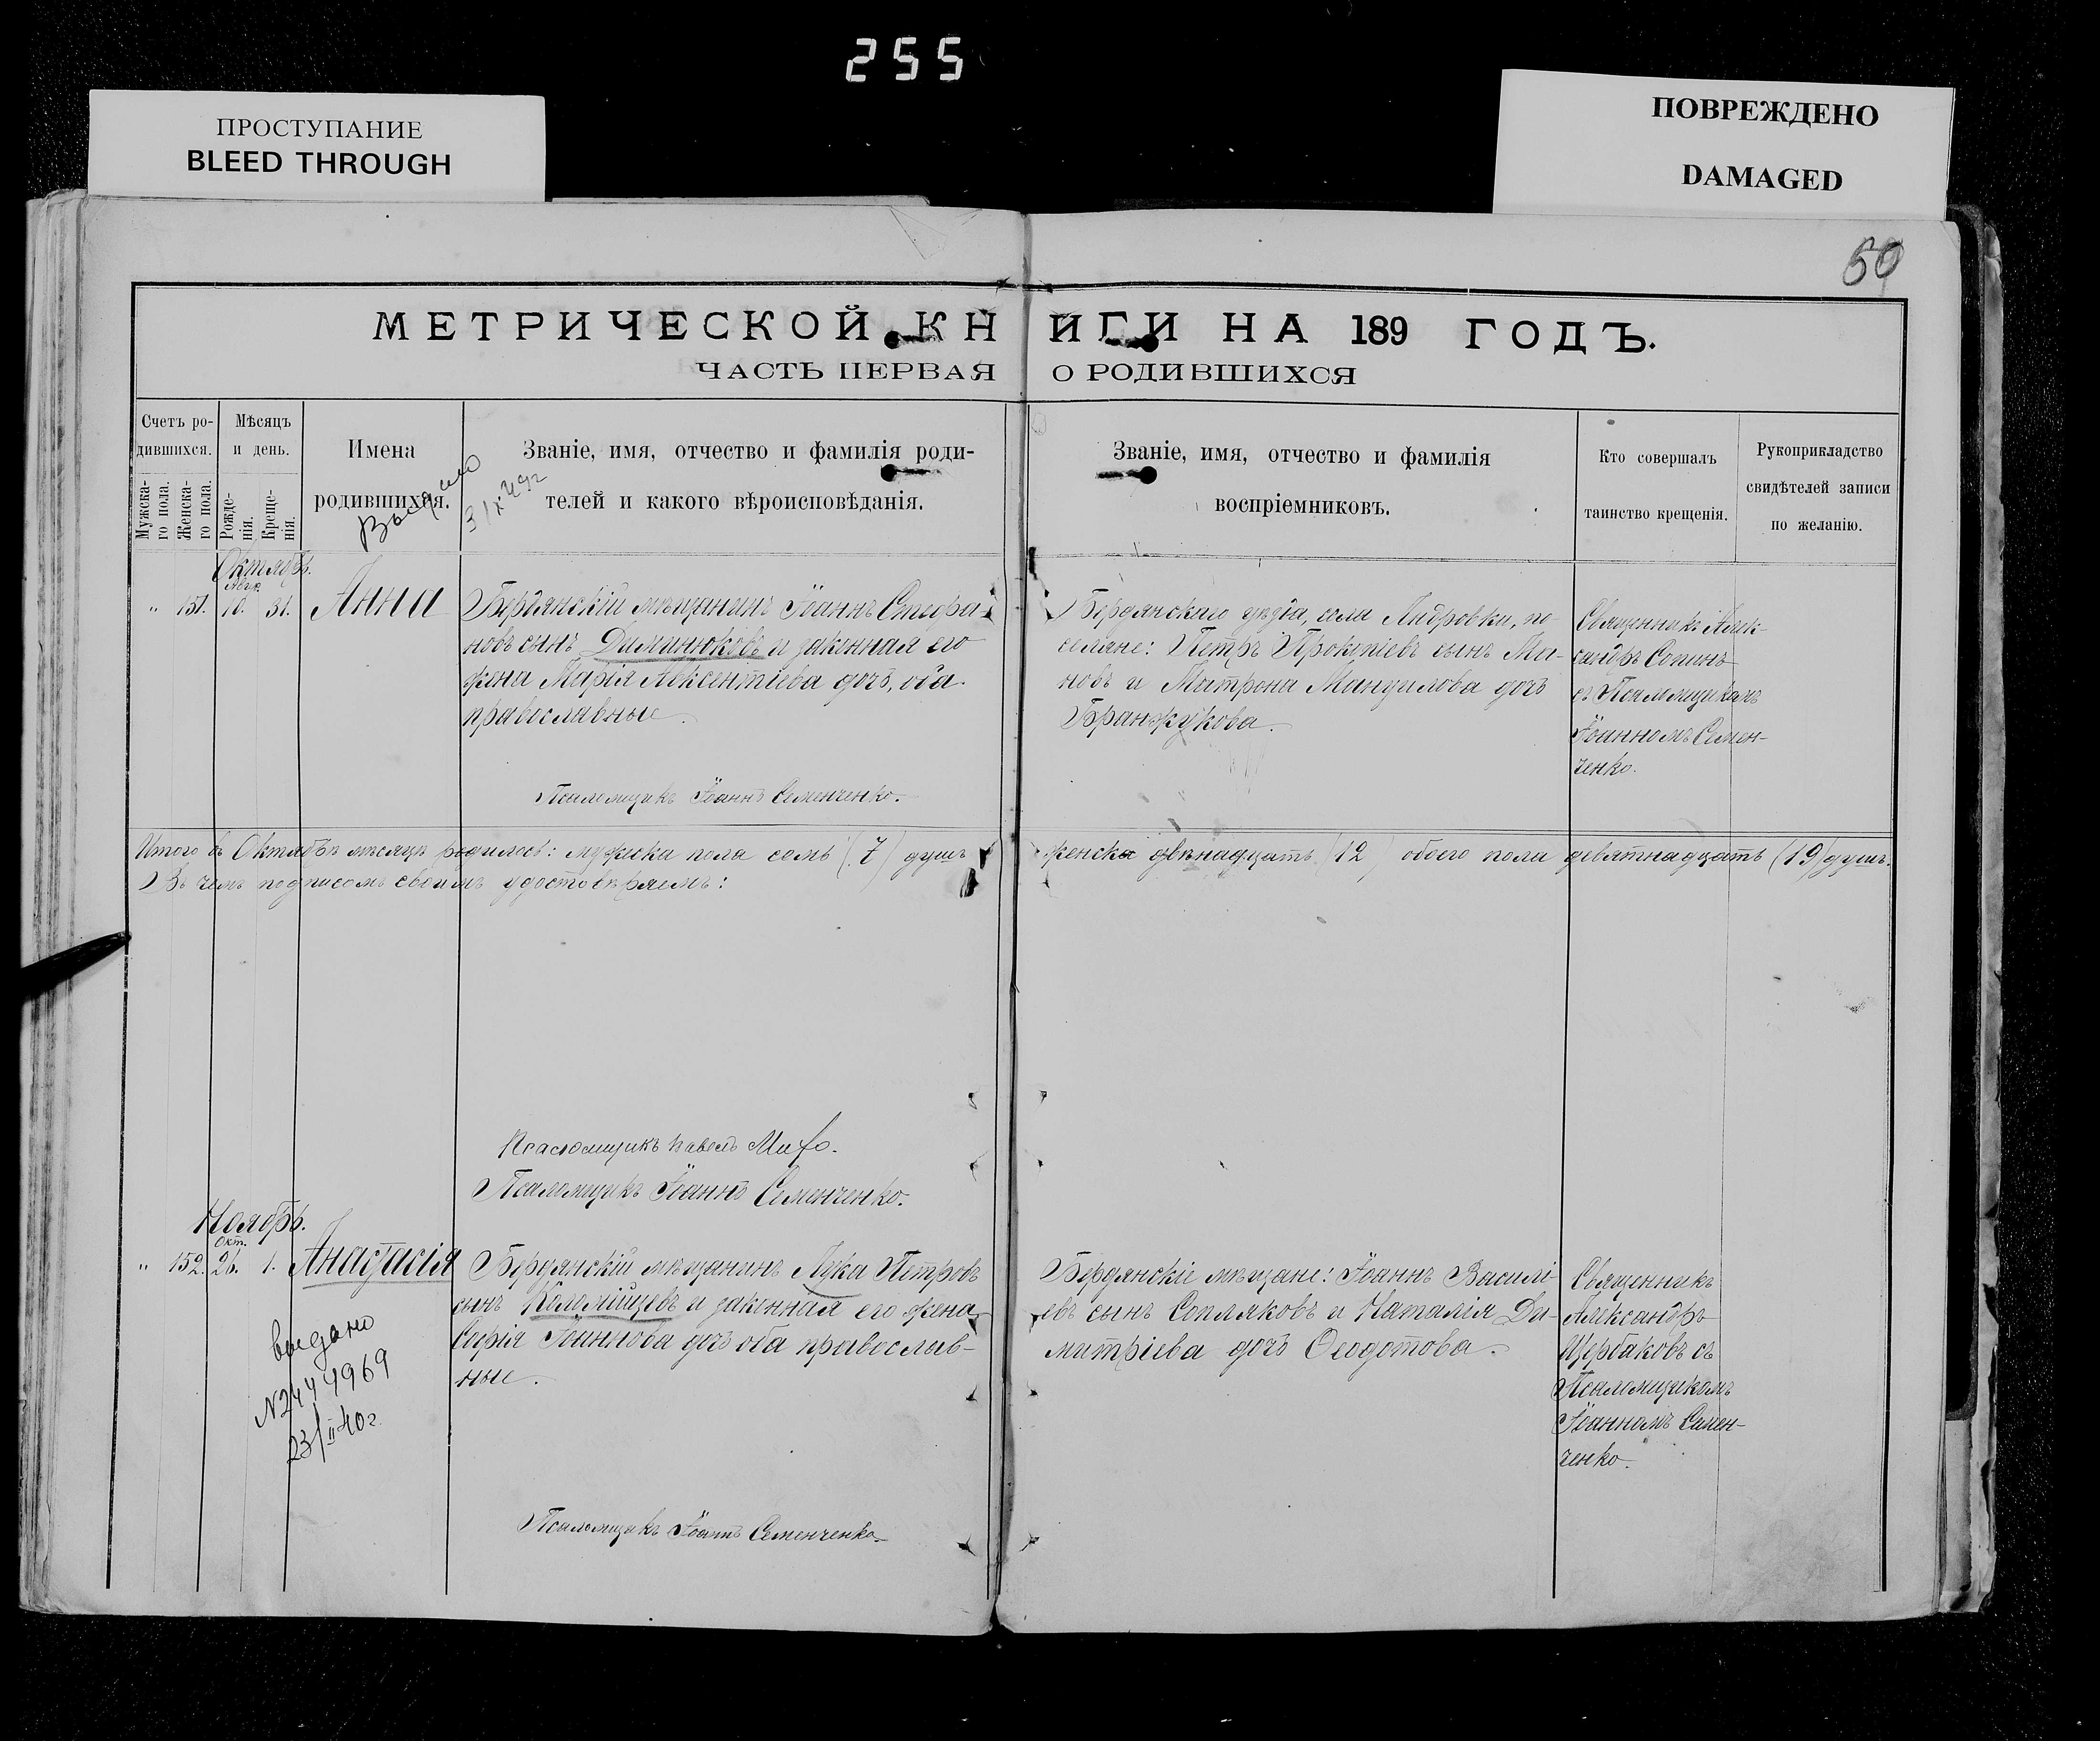 255
ПРОСТУПАНИЕ
BLEED THROUGH
ПОВРЕЖДЕНО
DAMAGED
МЕТРИЧЕСКОЙ КНИГИ НА 189 ГОДЪ.
ЧАСТЬ ПЕРВАЯ О РОДИВШИХСЯ
Счетъ ро-
дившихся.
Мужска-
го пола.
Женска-
го пола.
Мѣсяцъ
и день.
Рожде-
нія.
Креще-
нія.
Имена
родившихся.
Выдано
Званіе, имя, отчество и фамилія роди-
телей и какого вѣроисповѣданія.
Званіе, имя, отчество и фамилія
воспріемниковъ.
Кто совершалъ
таинство крещенія.
Рукоприкладство
свидѣтелей записи
по желанію.
Октябрь.
" 151. 10. 31. Анна
Бердянскій мѣщанинъ Іоаннъ Стефа-
новъ сынъ Диманюковъ и законная его
жена Марія Авксентіева дочь, оба
православные.
Псаломщикъ Іоаннъ Семенченко.
Бердянскаго уѣзда, села Андровки, по-
селяне: Петръ Прокопіевъ сынъ Ма-
новъ и Матрона Мануилова дочь
Бранжукова.
Священникъ Алек-
сандръ Сопинъ
съ Псаломщикомъ
Іоанномъ Семен-
ченко.
Итого въ Октябрѣ мѣсяцѣ родилось: мужска пола семь (7) душъ женска двѣнадцать (12) обоего пола девятнадцать (19) душъ.
Въ чемъ подписомъ своимъ удостовѣряемъ:
Псаломщикъ Павелъ
Псаломщикъ Іоаннъ Семенченко.
Ноябрь.
Окт.
" 152. 26. 1. Анастасія
выдано
23/II 40 г.
Бердянскій мѣщанинъ Лука Петровъ
сынъ Коломійцевъ и законная его жена
Софія Іоаннова дочь оба православ-
ные.
Псаломщикъ Іоаннъ Семенченко
Бердянскіе мѣщане: Іоаннъ Василі-
евъ сынъ Сопляковъ и Наталія Ди-
митріева дочь Ѳеодотова.
Священникъ
Александръ
Щербаковъ съ
Псаломщикомъ
Іоанномъ Семен-
ченко.